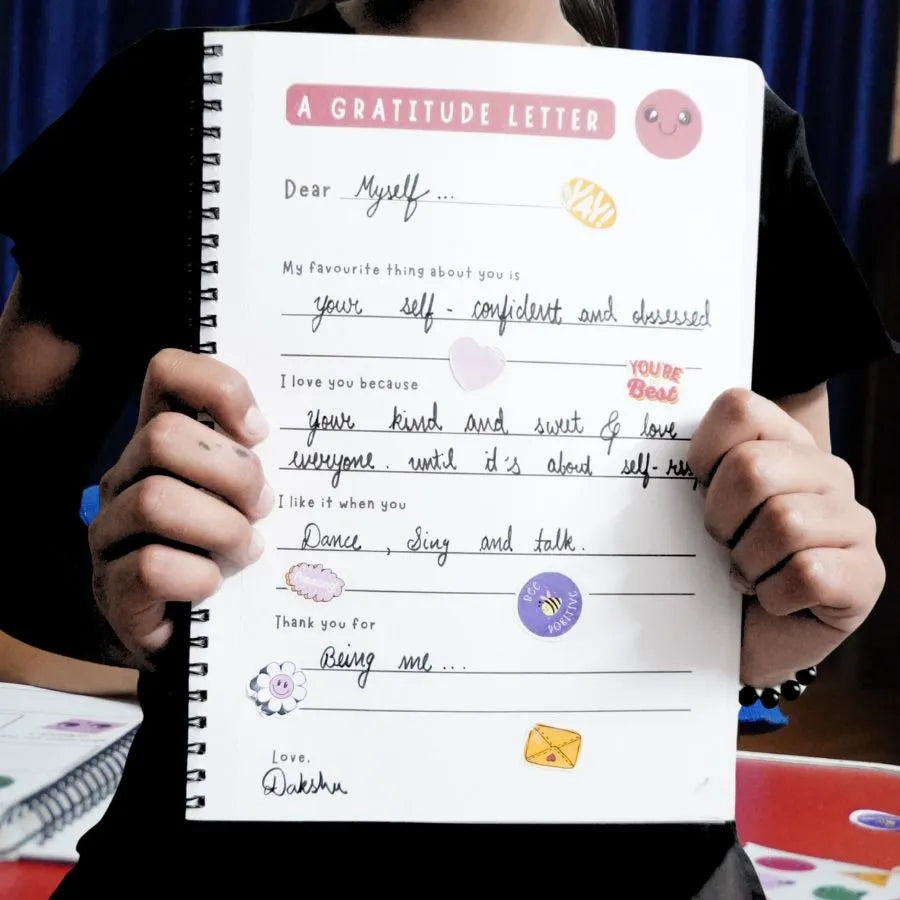 A GRATITUDE LETTER
Dear Myself...
YAY!
My favourite thing about you is
your self - confident and obssessed
YOU'RE
Best
I love you because
your kind and sweet & love
everyone. until it's about self-
I like it when you
Dance, Sing and talk.
Amazing
BEE
POSITIVE
Thank you for
Being me...
Love,
Dakshu